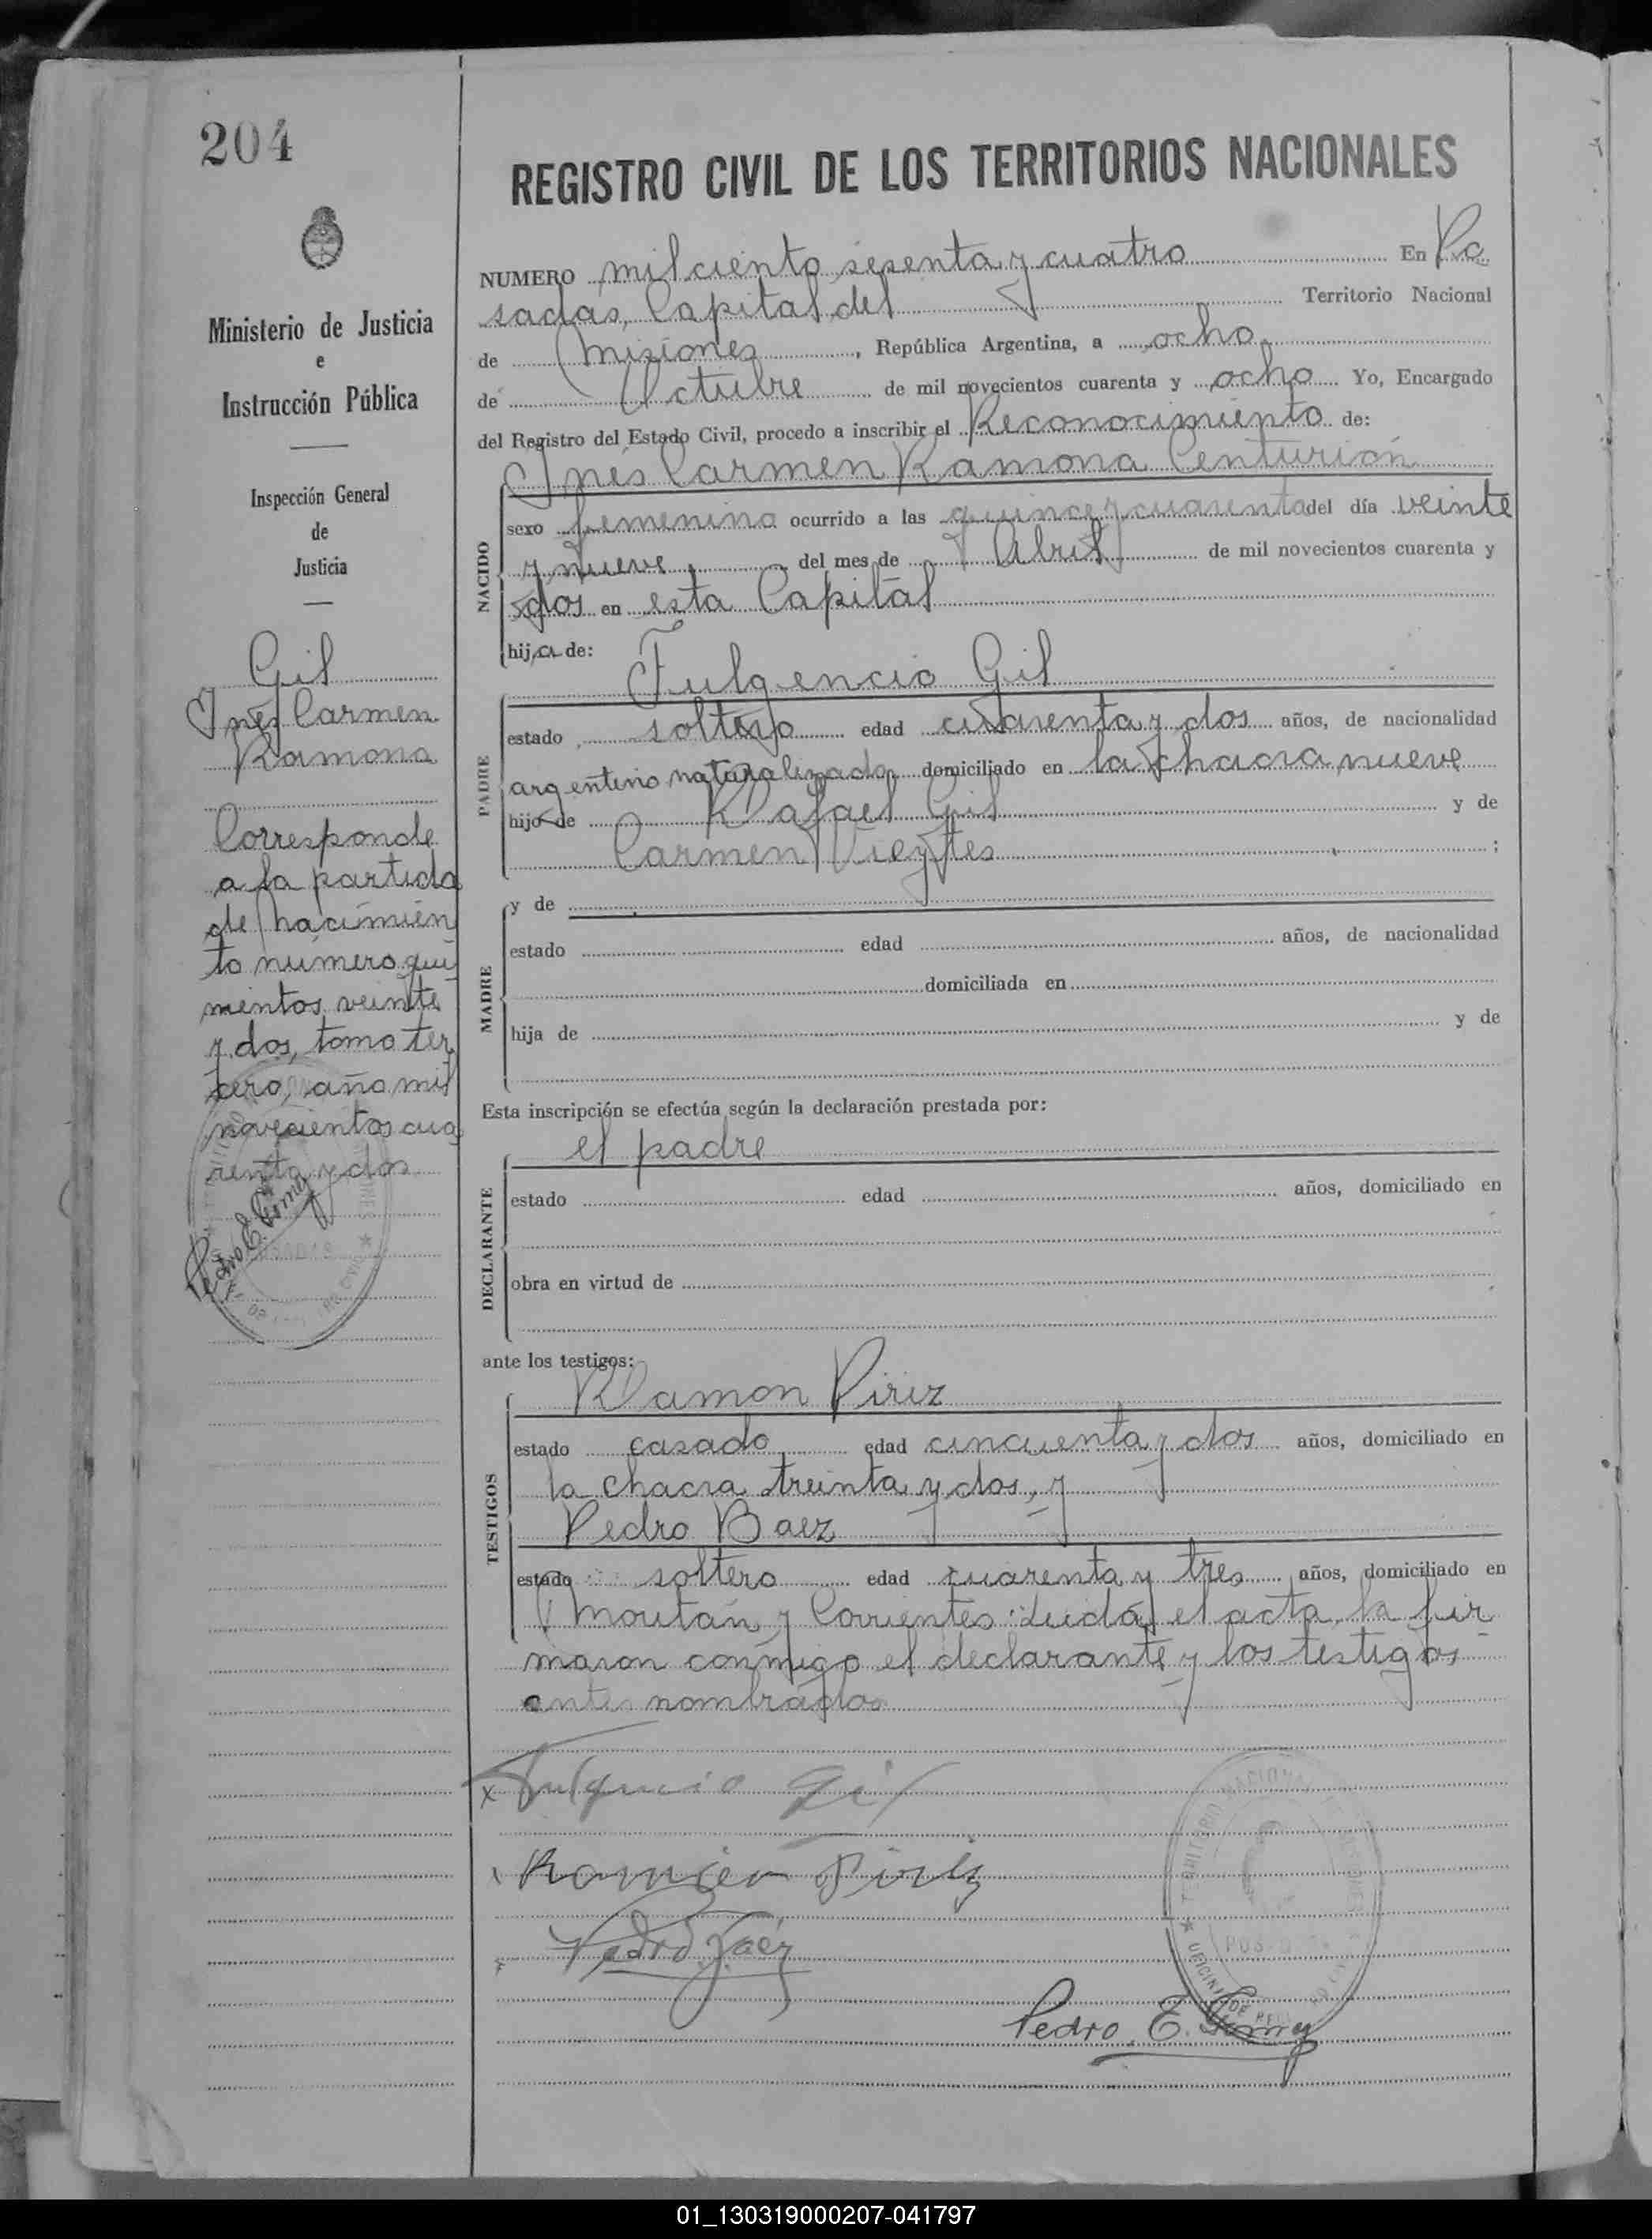 204
Ministerio de Justicia
e
Instrucción Pública
Inspección General
de
Justicia
Gil
Inés Carmen
Ramona
Corresponde
a la partida
de nacimien
to numero qui
nientos veinte
y dos, tomo ter
cero, año mil
novecientos cua
renta y dos
Pedro E.
REGISTRO CIVIL DE LOS TERRITORIOS NACIONALES
NUMERO mil ciento sesenta y cuatro En Po
sadas, Capital del Territorio Nacional
de Misiones, República Argentina, a ocho
de Octubre de mil novecientos cuarenta y ocho Yo, Encargado
del Registro del Estado Civil, procedo a inscribir el Reconocimiento de:
Inés Carmen Ramona Centurión
NACIDO
sexo femenino ocurrido a las quince y cuarenta del día veinte
y nueve del mes de Abril de mil novecientos cuarenta y
dos en esta Capital
hija de:
Fulgencio Gil
PADRE
estado soltero edad cuarenta y dos años, de nacionalidad
argentino naturalizado domiciliado en la chacra nueve
hijo de Rafael Gil y de
Carmen Vieytes ;
MADRE
y de
estado edad años, de nacionalidad
domiciliada en
hija de y de
Esta inscripción se efectúa según la declaración prestada por:
el padre
DECLARANTE
estado edad años, domiciliado en
obra en virtud de
ante los testigos:
Ramon Piriz
TESTIGOS
estado casado edad cincuenta y dos años, domiciliado en
la chacra treinta y dos, y
Pedro Baez
estado soltero edad cuarenta y tres años, domiciliado en
Moritán y Corrientes: Leída el acta, la fir
maron conmigo el declarante y los testigos
antes nombrados
x Fulgencio Gil
Ramón Piriz
Pedro Baez
Pedro E.
01_130319000207-041797